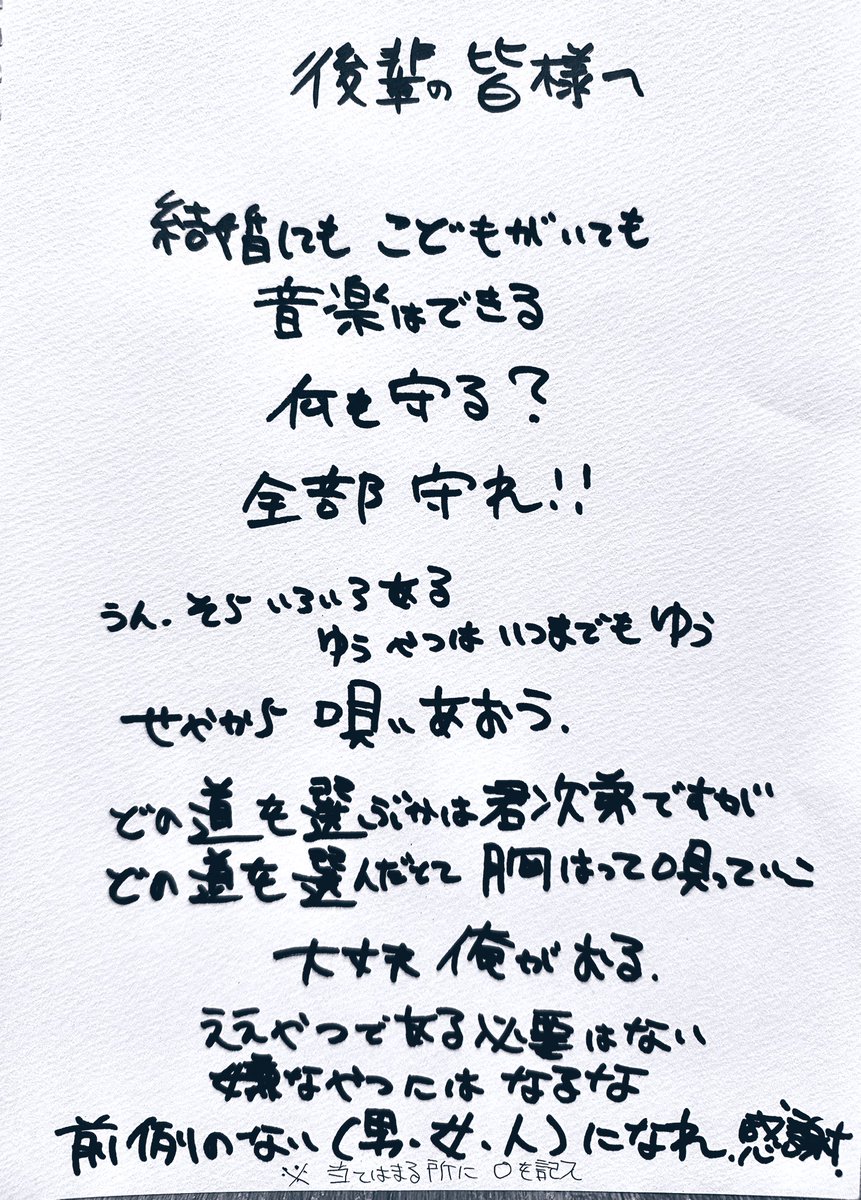 後輩の皆様へ
結婚しても こどもがいても
音楽はできる
何を守る?
全部 守れ!!
うん.そら いろいろ ある
ゆう やつは いつまでも ゆう
せやから 唄い あおう.
どの道を選ぶかは君次第ですが
どの道を選んだとて 胸はって唄っていこ
大丈夫 俺が おる.
ええやつで ある必要はない
嫌なやつには なるな
前例のない(男・女・人)になれ.感謝!
※ 当てはまる所に ○を記入